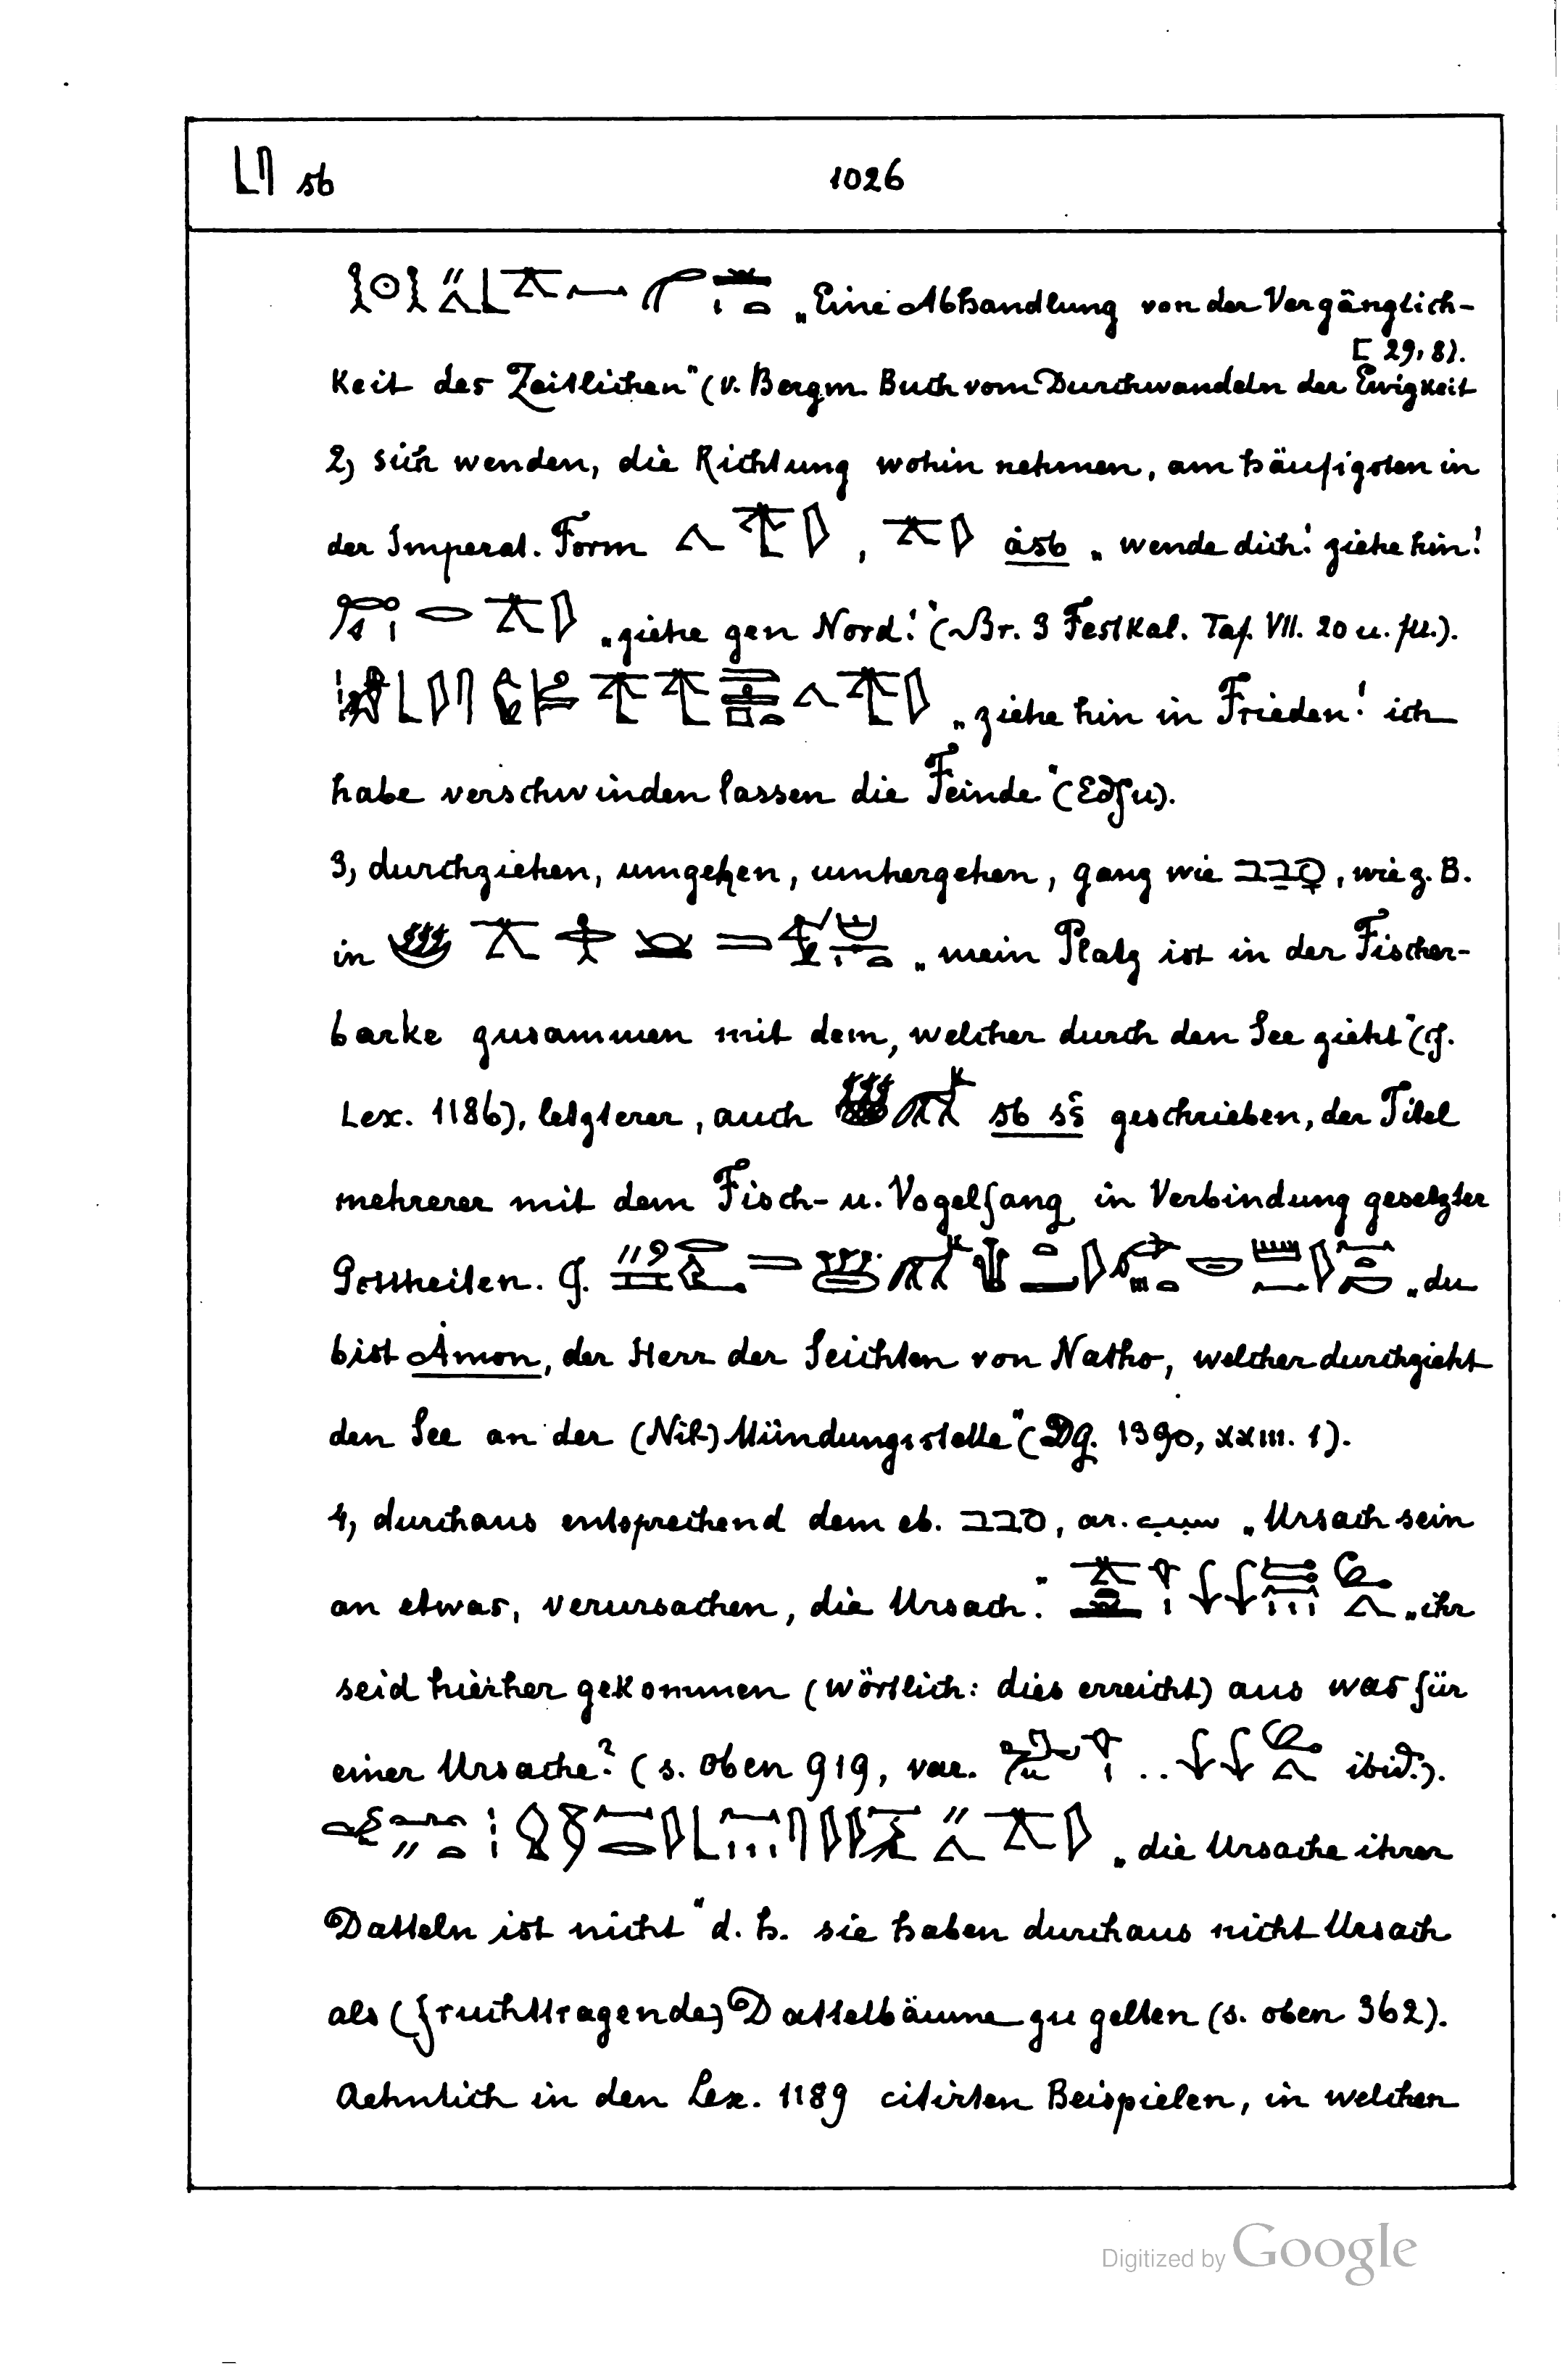 𓃀𓋴 sb 1026
„Eine Abhandlung von der Vergänglich-
[29, 8).
keit des Zeitlichen“ (v. Bergm. Buch vom Durchwandeln der Ewigkeit
2) sich wenden, die Richtung wohin nehmen, am häufigsten in
der Imperat. Form , åsb „wende dich! ziehe hin!
„ziehe gen Nord!“ (Br. 3 Festkal. Taf. VII. 20 u. fll.).
„ziehe hin in Frieden! ich
habe verschwinden lassen die Feinde“ (Edfu).
3) durchziehen, umgehen, umhergehen, ganz wie סבב, wie z. B.
in „mein Platz ist in der Fischer-
barke zusammen mit dem, welcher durch den See zieht“ (cf.
Lex. 1186), letzterer, auch sb sš geschrieben, der Titel
mehrerer mit dem Fisch- u. Vogelfang in Verbindung gesetzter
Gottheiten. Cf. „du
bist Ȧmon, der Herr der Seichten von Natho, welcher durchzieht
den See an der (Nil-) Mündungsstelle“ (DG. 1390, XXIII. 1).
4) durchaus entsprechend dem eb. סבב, ar. سبب „Ursach sein
an etwas, verursachen, die Ursach.“ „ihr
seid hierher gekommen (wörtlich: dies erreicht) aus was für
einer Ursache? (s. oben 919, var. .. ibid.).
„die Ursache ihrer
Datteln ist nicht“ d. h. sie haben durchaus nicht Ursach
als (fruchttragende) Dattelbäume zu gelten (s. oben 362).
Aehnlich in den Lex. 1189 citirten Beispielen, in welchen
Digitized by Google